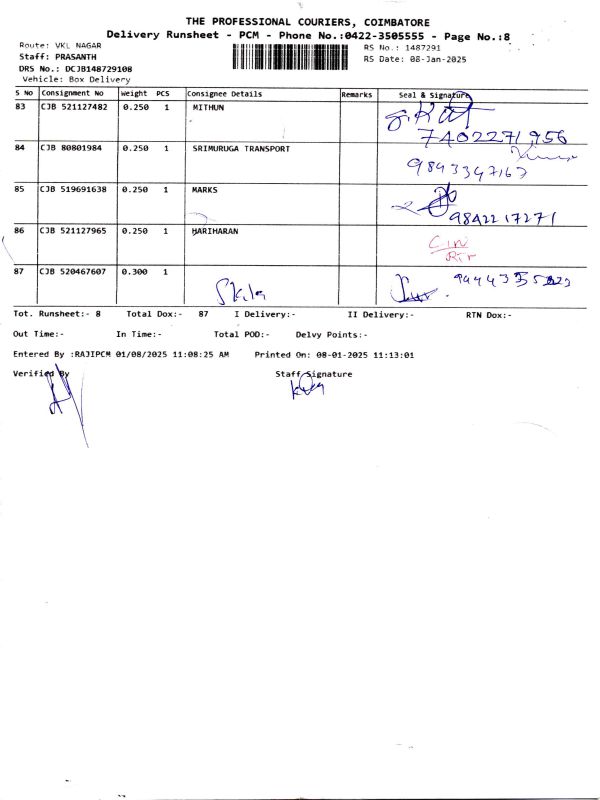 THE PROFESSIONAL COURIERS, COIMBATORE
Delivery Runsheet - PCM - Phone No.:0422-3505555 - Page No.:8
Route: VKL NAGAR
RS No.: 1487291
Staff: PRASANTH
RS Date: 08-Jan-2025
DRS No.: DCJB148729108
Vehicle: Box Delivery
S No Consignment No Weight PCS Consignee Details Remarks Seal & Signature
83 CJB 521127482 0.250 1 MITHUN
7402271956
84 CJB 80801984 0.250 1 SRIMURUGA TRANSPORT
9843347167
85 CJB 519691638 0.250 1 MARKS
9842217271
86 CJB 521127965 0.250 1 HARIHARAN
87 CJB 520467607 0.300 1
Tot. Runsheet:- 8 Total Dox:- 87 I Delivery:- II Delivery:- RTN Dox:-
Out Time:- In Time:- Total POD:- Delvy Points:-
Entered By :RAJIPCM 01/08/2025 11:08:25 AM Printed On: 08-01-2025 11:13:01
Verified By Staff Signature